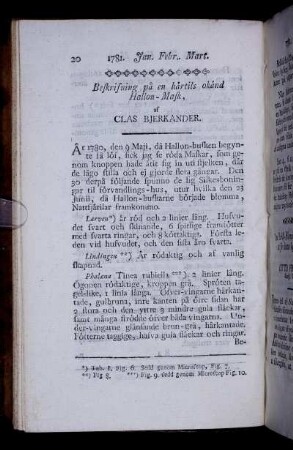 20 1781. Jan. Febr. Mart.
Beskrifning på en härtils okänd
Hallon-Mask,
af
CLAS BJERKANDER.
År 1780, den 9 Maji, då Hallon-busken begyn-
te få löf, fick jag se röda Maskar, som ge-
nom knoppen hade ätit sig in uti stjelken, där
de lågo stilla och ej gjorde flera gångar. Den
30 derpå följande spunno de sig Silkesbonin-
gar til förvandlings-hus, utur hvilka den 23
Junii, då Hallon-buskarne började blomma,
Nattfjärilar framkommo.
Larven*) är röd och 2 linier lång. Hufvu-
det svart och skinande, 6 spitsige framfötter
med svarta ringar, och 8 körtaktige. Första le-
den vid hufvudet, och den sista äro svarta.
Lindingen **) Är rödaktig och af vanlig
skapnad.
Phalæna Tinea rubiella ***): 2 linier lång.
Ögonen rödaktige, kroppen grå. Spröten ta-
gel-like, 1 linia långa. Öfver-vingarne hårkan-
tade, gulbruna, inre kanten på öfre sidan har
2 stora och den yttre 3 mindre gula fläckar,
samt många strödde öfver båda vingarna. Un-
der-vingarne glänsande brun-grå, hårkantade.
Fötterne taggige, hafva gula fläckar och ringar.
Be-
*) Tab. I. Fig. 6. Sedd genom Microscop, Fig. 7.
**) Fig 8. ***) Fig. 9. sedd genom Microscop Fig. 10.